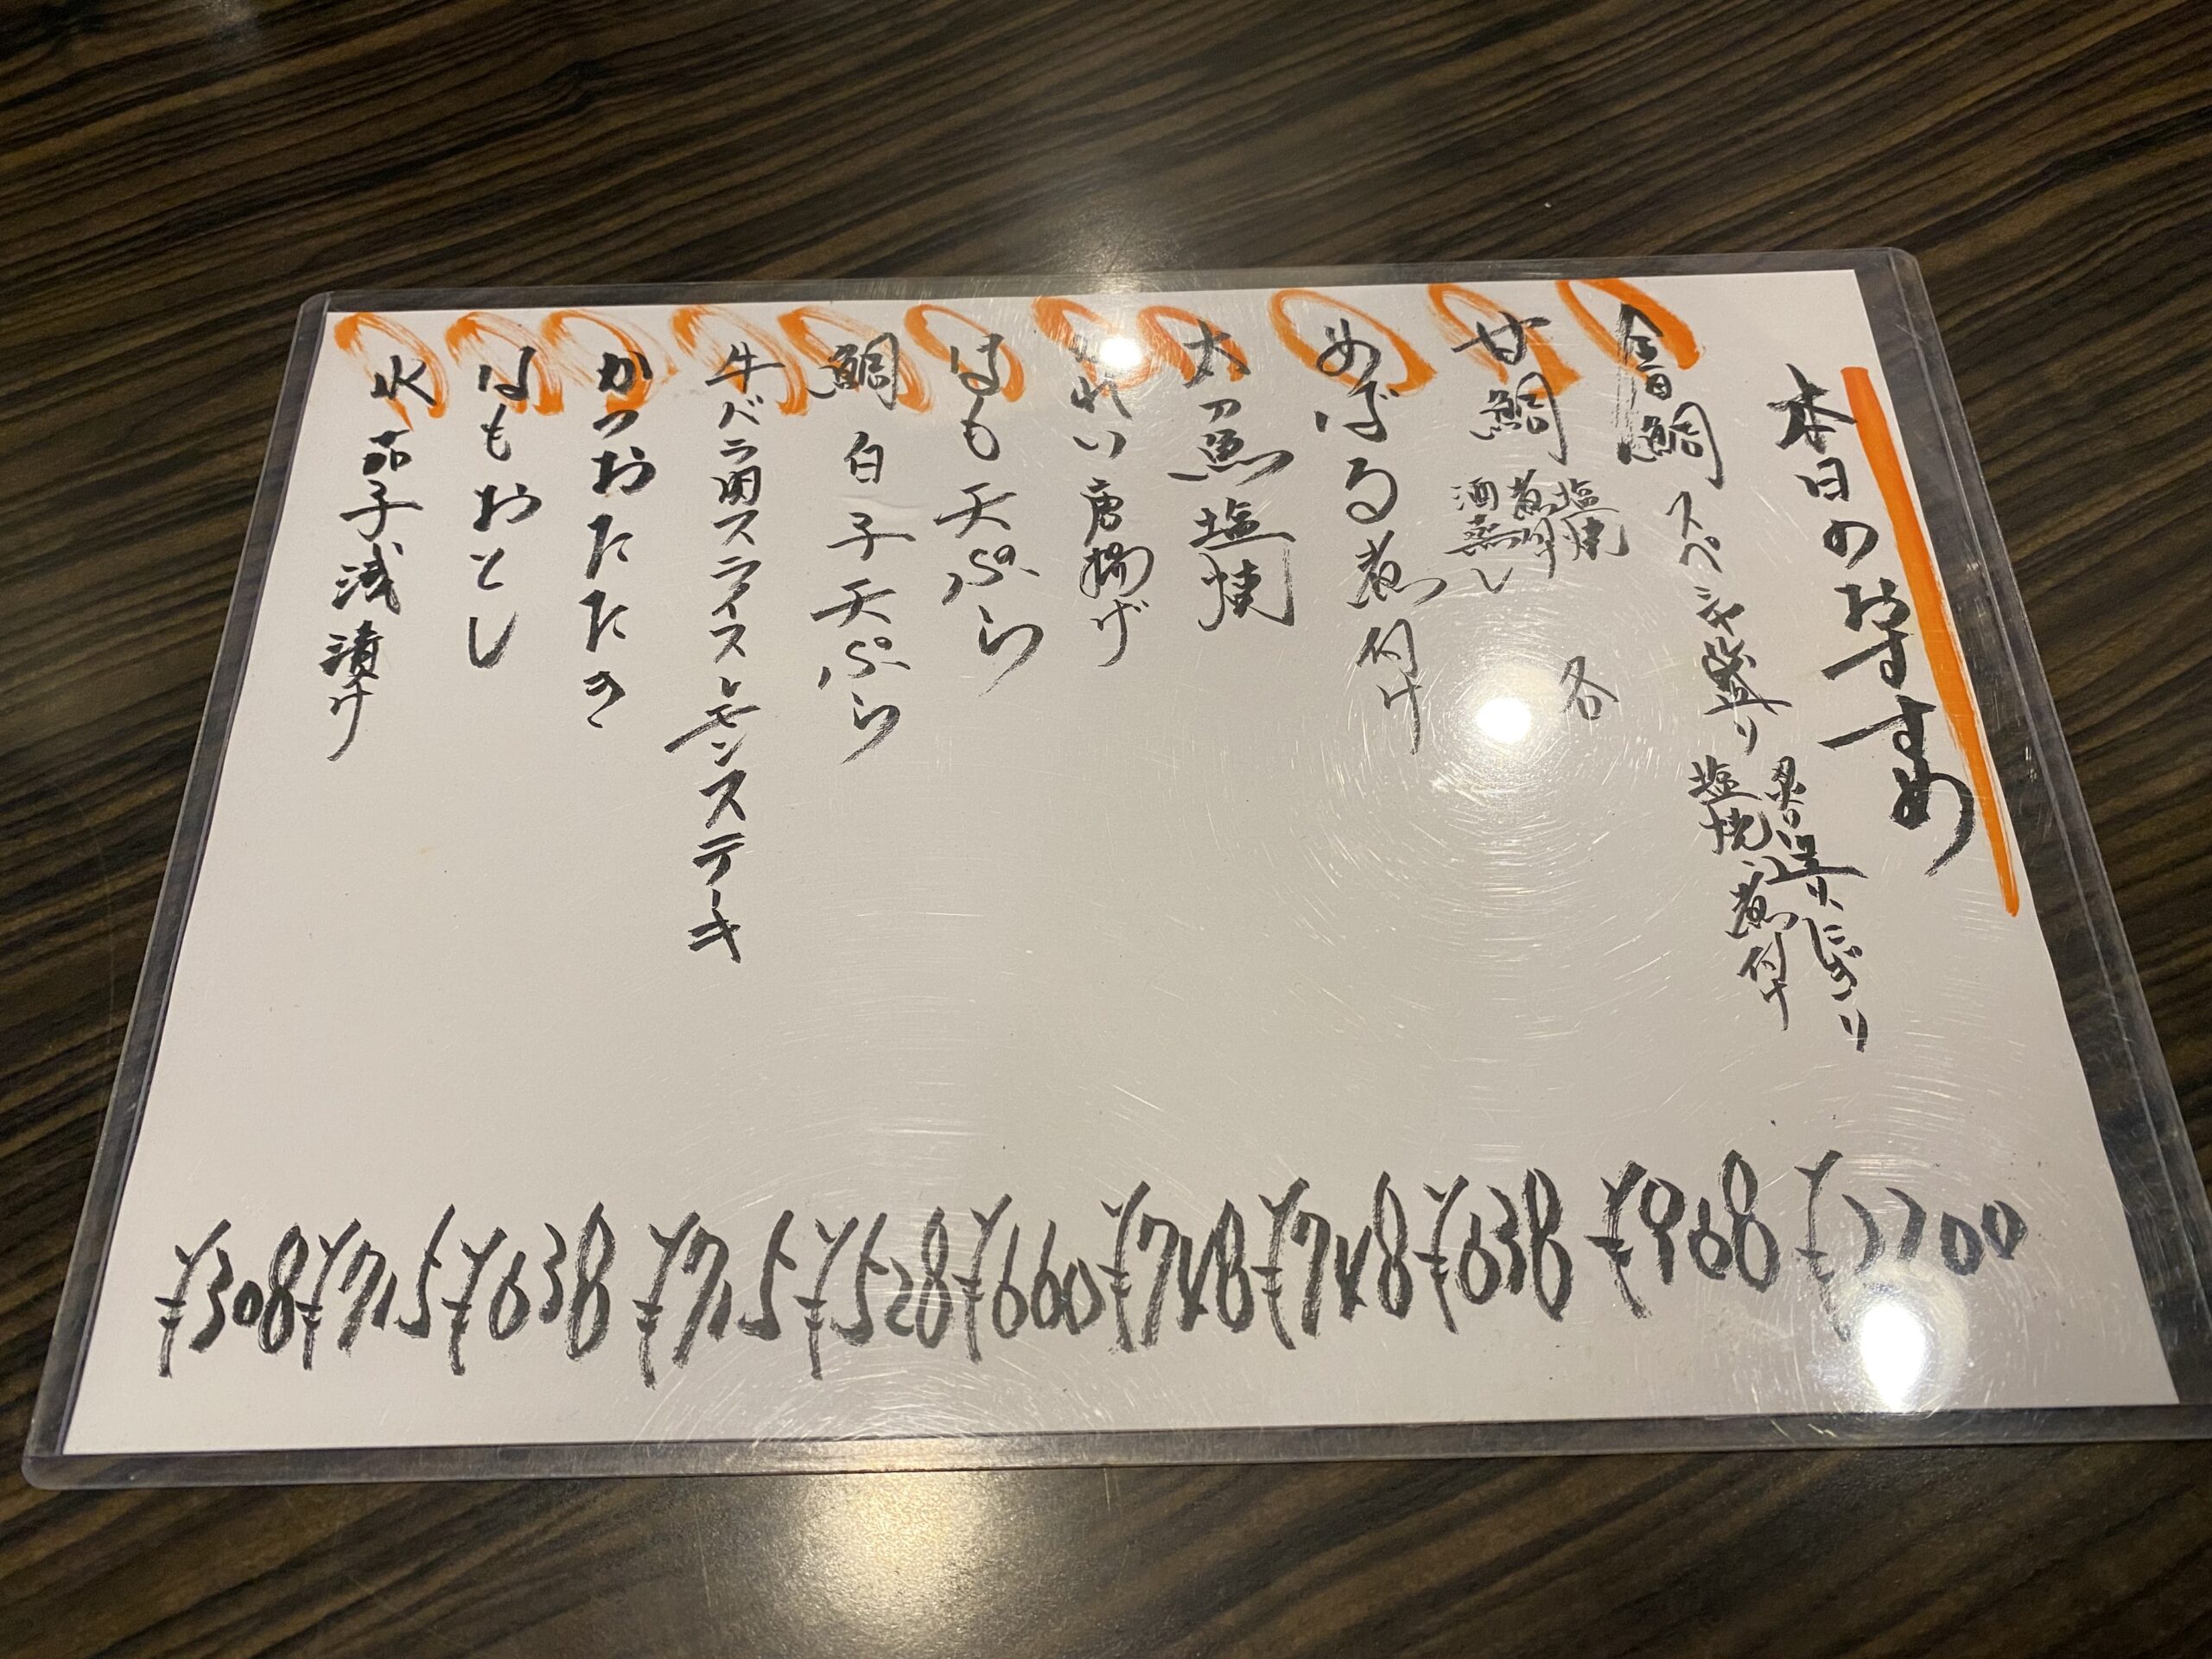 本日のおすすめ
金目鯛 スペシャル盛り 塩焼 煮付 にぎり ¥
甘鯛 塩焼 煮付 酒蒸し 各 ¥968
めばる煮付け ¥638
太刀魚塩焼 ¥748
れい唐揚げ ¥748
はも天ぷら ¥660
鯛白子天ぷら ¥528
牛バラ肉スライスレモンステーキ ¥715
かつおたたき ¥638
はもおとし ¥715
水茄子浅漬け ¥308